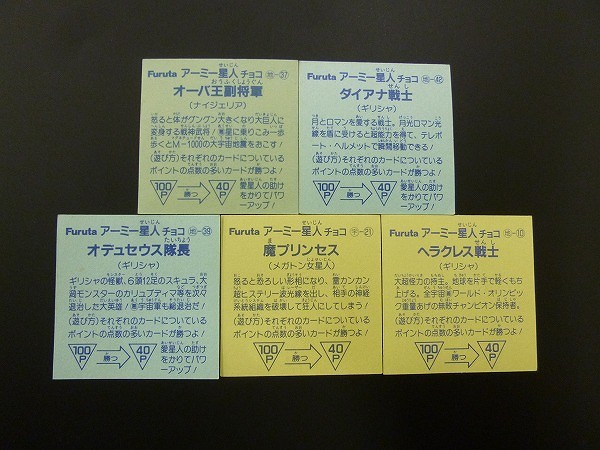 Furuta アーミー星人 チョコ 地-37
オーバ王副将軍
(ナイジェリア)
怒ると体がグングン大きくなり大巨人に
変身する戦神武将!悪星に乗りこみ一歩
歩くとM-1000の大宇宙地震をおこす!
(遊び方)それぞれのカードについている
ポイントの点数の多いカードが勝つよ!
100P 勝つ 40P
愛星人の助け
をかりてパワ
ーアップ!
Furuta アーミー星人 チョコ 地-42
ダイアナ戦士
(ギリシャ)
月とロマンを愛する戦士。月光ロマン光
線を盾に受けると超能力を得て、テレポ
ート・ヘルメットで瞬間移動できる!
(遊び方)それぞれのカードについている
ポイントの点数の多いカードが勝つよ!
100P 勝つ 40P
愛星人の助け
をかりてパワ
ーアップ!
Furuta アーミー星人 チョコ 地-39
オデュセウス隊長
(ギリシャ)
ギリシャの怪獣、6頭12足のスキュラ、大
渦モンスターのカリュプディマ等を次々
退治した大英雄!悪宇宙軍も総退治だ!
(遊び方)それぞれのカードについている
ポイントの点数の多いカードが勝つよ!
100P 勝つ 40P
愛星人の助け
をかりてパワ
ーアップ!
Furuta アーミー星人 チョコ 宇-21
魔プリンセス
(メガトン女星人)
怒ると恐ろしい形相になり、雷カンカン
超ヒステリー波光線を出し、相手の神経
系統組織を破壊して狂人にしてしまう!
(遊び方)それぞれのカードについている
ポイントの点数の多いカードが勝つよ!
100P 勝つ 40P
Furuta アーミー星人 チョコ 地-10
ヘラクレス戦士
(ギリシャ)
大超怪力の持主。地球を片手で軽くもち
上げる。全宇宙悪ワールド・オリンピッ
ク重量あげの無敵チャンピオン保持者。
(遊び方)それぞれのカードについている
ポイントの点数の多いカードが勝つよ!
100P 勝つ 40P